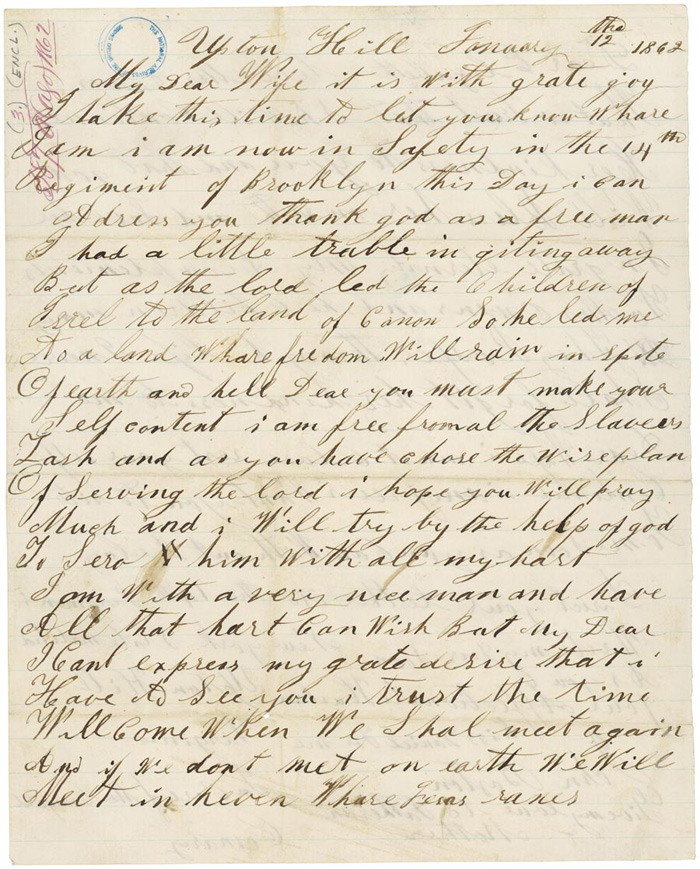 (3.) (ENCL.)
1862
Upton Hill January the 12 1862
My Dear Wife it is with grate joy
I take this time to let you know Whare
I am i am now in Safety in the 14th
Regiment of Brooklyn this Day i can
Adress you thank god as a free man
I had a little truble in giting away
But as the lord led the Children of
Isrel to the land of Canon So he led me
to a land Whare fredom Will rain in spite
Of earth and hell Dear you must make your
Self content i am free from al the Slavers
Lash and as you have chose the Wise plan
Of Serving the lord i hope you Will pray
Much and i Will try by the help of god
To Serv him With all my hart
I am With a very nice man and have
All that hart Can Wish But My Dear
I Cant express my grate desire that i
Have to See you i trust the time
Will Come When We Shal meet again
And if We dont met on earth We Will
Meet in heven Whare Jesas ranes